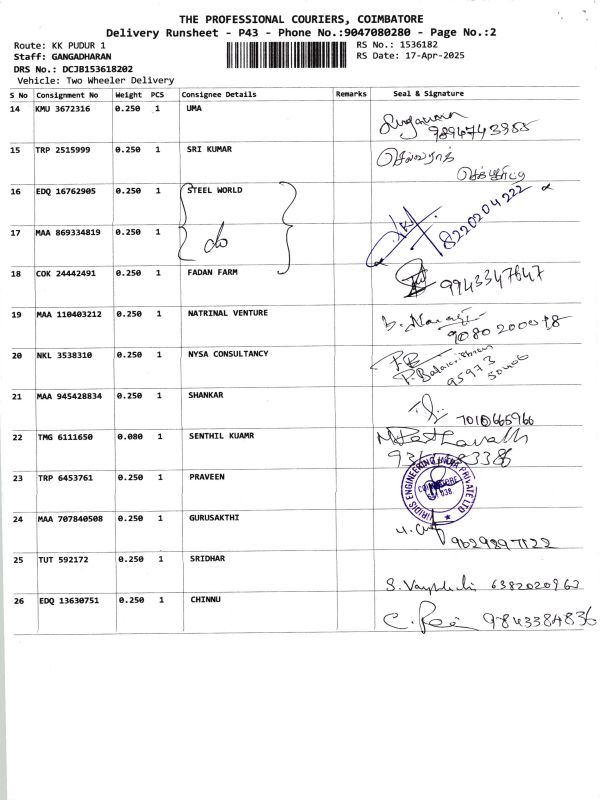 THE PROFESSIONAL COURIERS, COIMBATORE
Delivery Runsheet - P43 - Phone No.:9047080280 - Page No.:2
Route: KK PUDUR 1
Staff: GANGADHARAN
DRS No.: DCJB153618202
Vehicle: Two Wheeler Delivery
RS No.: 1536182
RS Date: 17-Apr-2025
S No Consignment No Weight PCS Consignee Details Remarks Seal & Signature
14 KMU 3672316 0.250 1 UMA
9894743985
15 TRP 2515999 0.250 1 SRI KUMAR
செல்வராக்
16 EDQ 16762905 0.250 1 STEEL WORLD
8220204222
17 MAA 869334819 0.250 1 do
18 COK 24442491 0.250 1 FADAN FARM
9943347647
19 MAA 110403212 0.250 1 NATRINAL VENTURE
20 NKL 3538310 0.250 1 NYSA CONSULTANCY
P.B
P. Balakrishnan
95973
50406
21 MAA 945428834 0.250 1 SHANKAR
7010665966
22 TMG 6111650 0.080 1 SENTHIL KUAMR
23 TRP 6453761 0.250 1 PRAVEEN
VIRIDIS ENGINEERING INDIA PRIVATE LTD
COIMBATORE
24 MAA 707840508 0.250 1 GURUSAKTHI
9629897122
25 TUT 592172 0.250 1 SRIDHAR
6382020963
26 EDQ 13630751 0.250 1 CHINNU
9843384836